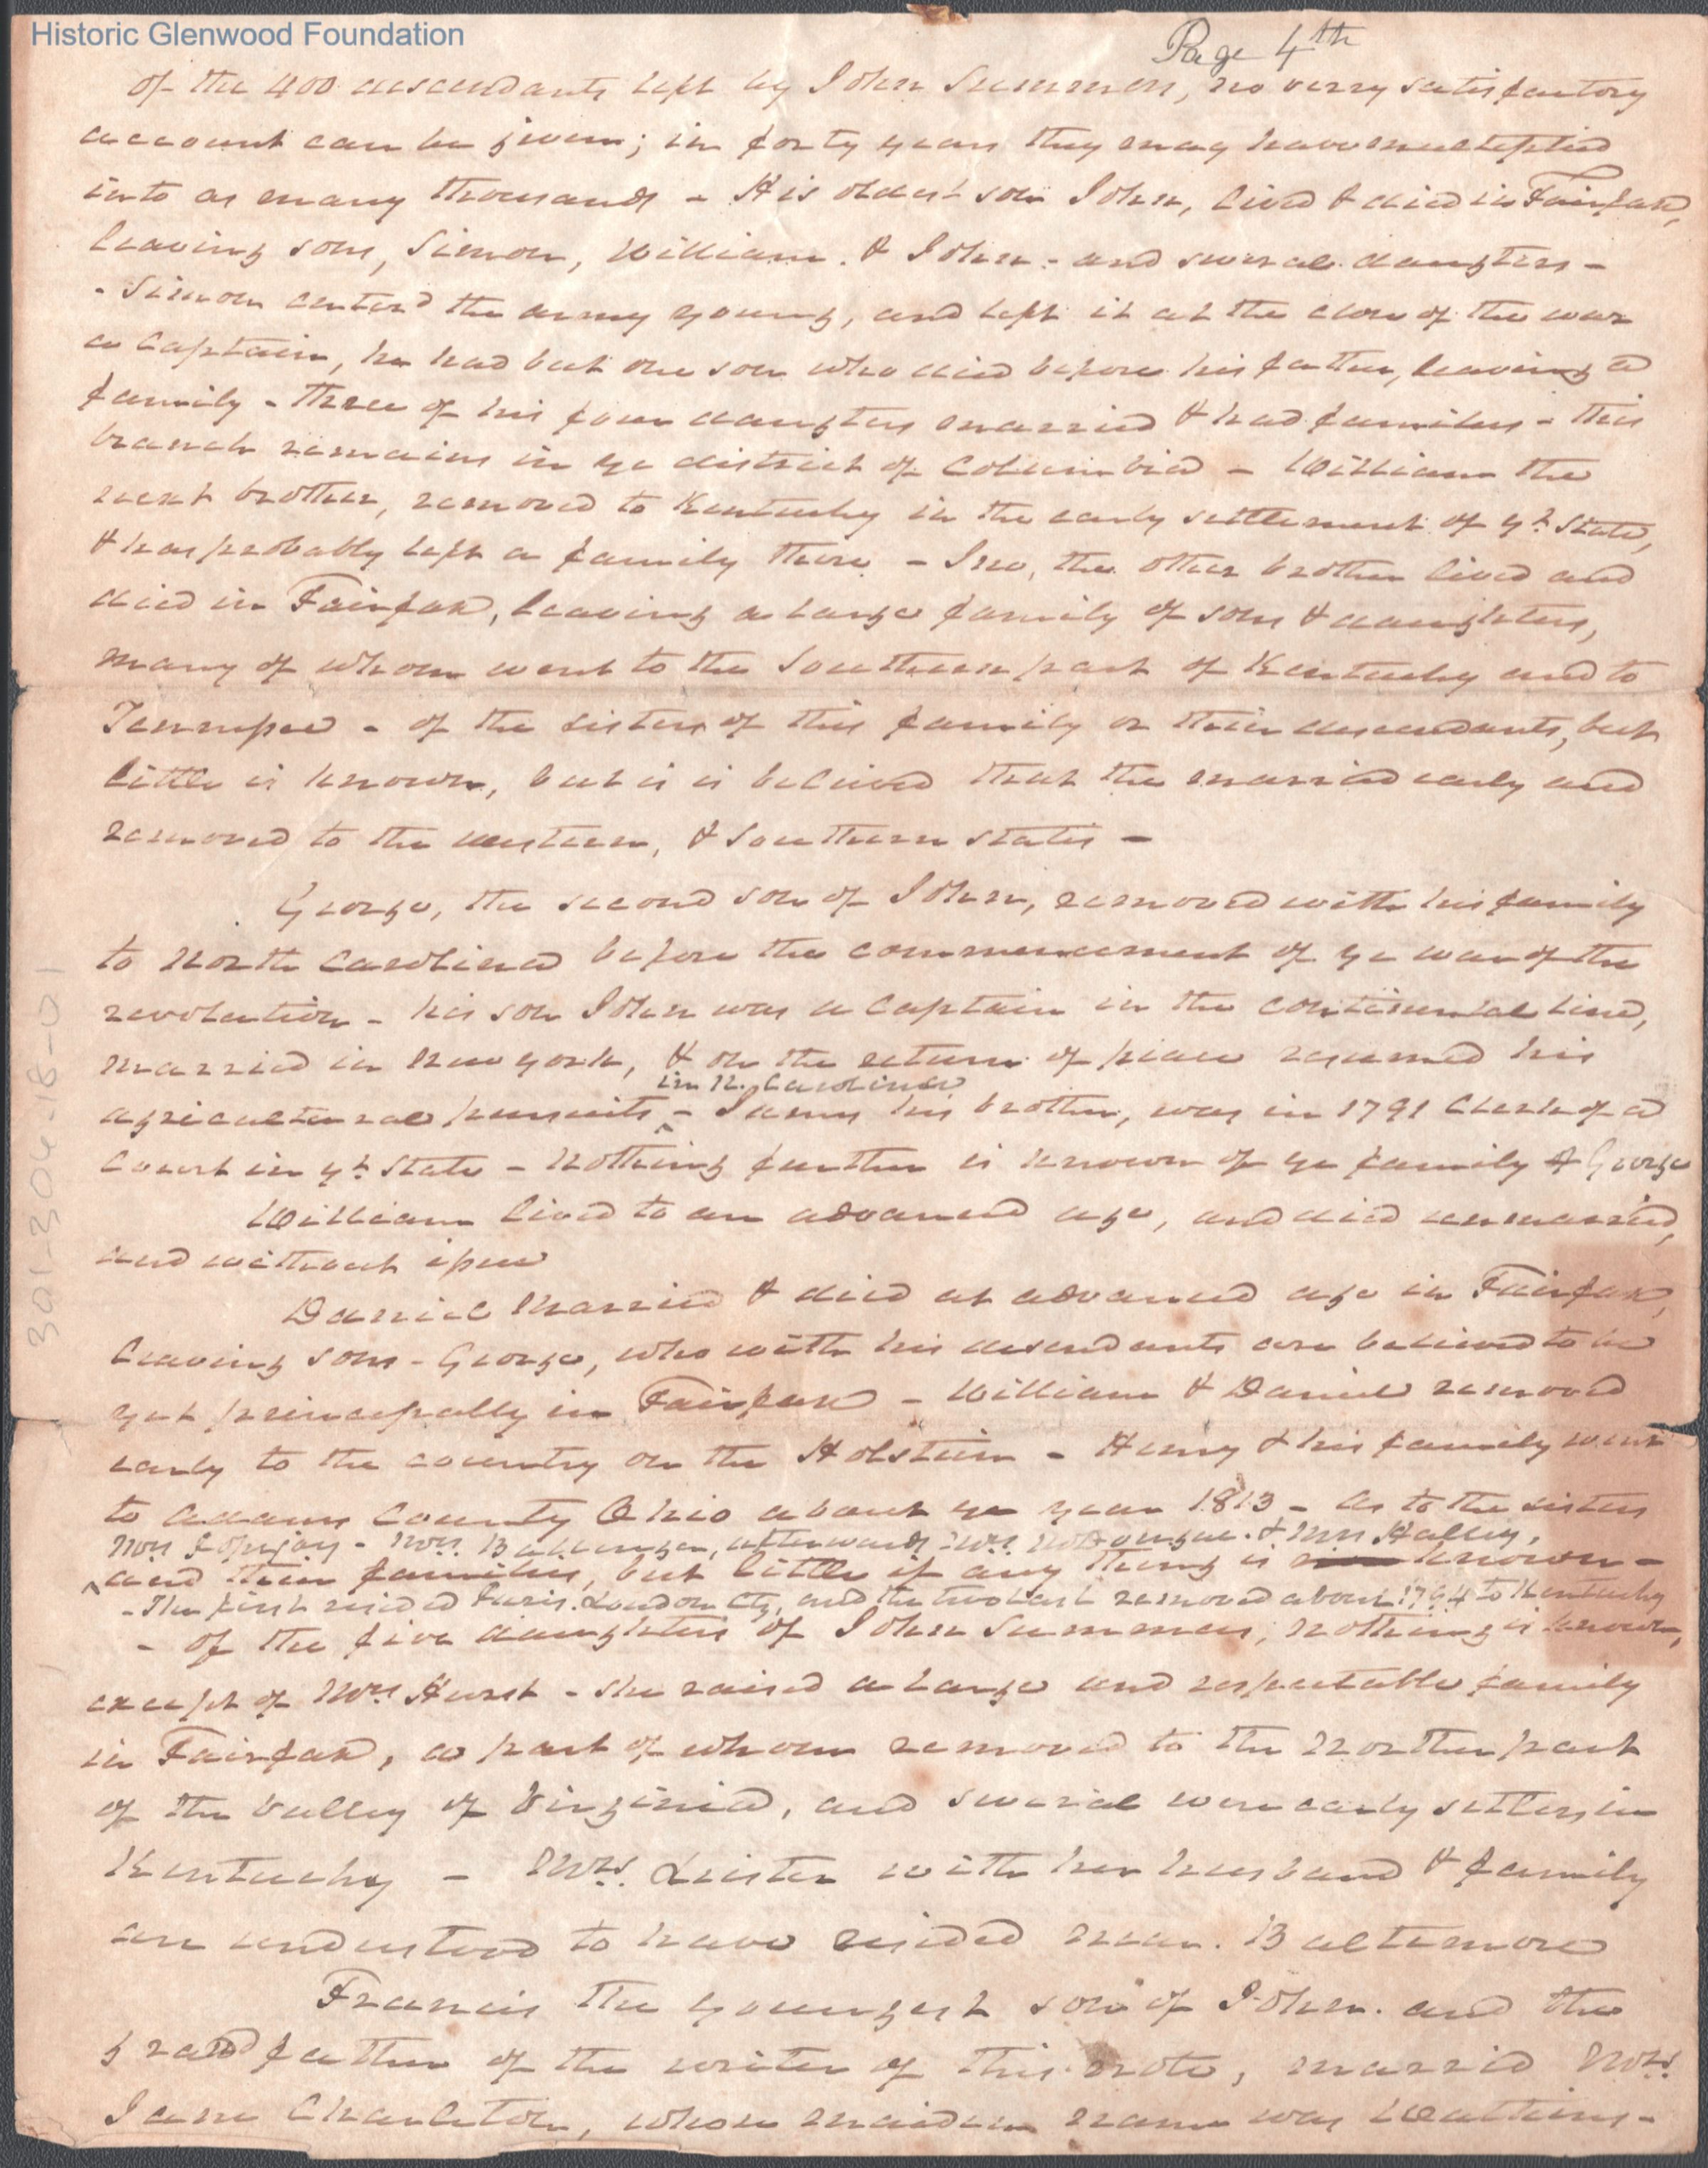 Historic Glenwood Foundation
Page 4th
Of the 400 descendants left by John Summers, no verry satisfactory
account can be given; in forty years they may have multeplied
into as many thousands - His oldest son John, lived & died in Fairfax,
leaving sons, Simon, William. & John - and several daughters -
- Simon enterd the army young, and left it at the close of the war
a Captain, he had but one son who died before his father, leaving a
family - three of his four daugters married & had families - this
branch remains in ye district of Columbia - William the
next brother, removed to Kentucky in the early settlement of yt State,
& has probably left a family there - Jno, the other brother lived and
died in Fairfax, leaving a large family of sons & daughters,
many of whom went to the Southern part of Kentucky and to
Tennessee - of the sisters of this family or their descendants, but
little is known, but is is believed that the married early and
removed to the western, & Southern States -
George, the second son of John, removed with his family
to North Carolina before the commencement of ye war of the
revolution - his son John was a Captain in the continental line,
married in New york, & on the return of peace resumed his
in N. Carolina
agricultural pursuits - James his brother, was in 1791 Clerk of a
Court in yt State - Nothing further is known of ye family of George
William lived to an advanced age, and died unmarried,
and without issue
Daniel Married & died at advanced age in Fairfax,
leaving sons - George, who with his desendants are believed to be
yet principally in Fairfax - William & Daniel removed
early to the country on the Holstein - Henry & his family went
to Adams County Ohio about ye year 1813 - As to the sisters
Mrs Mrs. Ballenger, afterwards Mrs. & Mrs Halley,
and their families, but little if any thing is known -
- The first resided Loudon Cty, and the two last removed about 1794 to Kentucky
- of the five daughters of John Summers, nothing is known,
except of Mrs Hurst - she raised a large and respectable family
in Fairfax, a part of whom removed to the Northern part
of the Valley of Virginia, and several were early settlers in
Kentucky - Mrs. Lister with her husband & family
are understood to have resided near. Baltemore
Francis the youngest son of John. and the
grandfather of the writer of this note, married Mrs.
Jane Charleton, whose maiden name was Watkins -
301-304-18-01